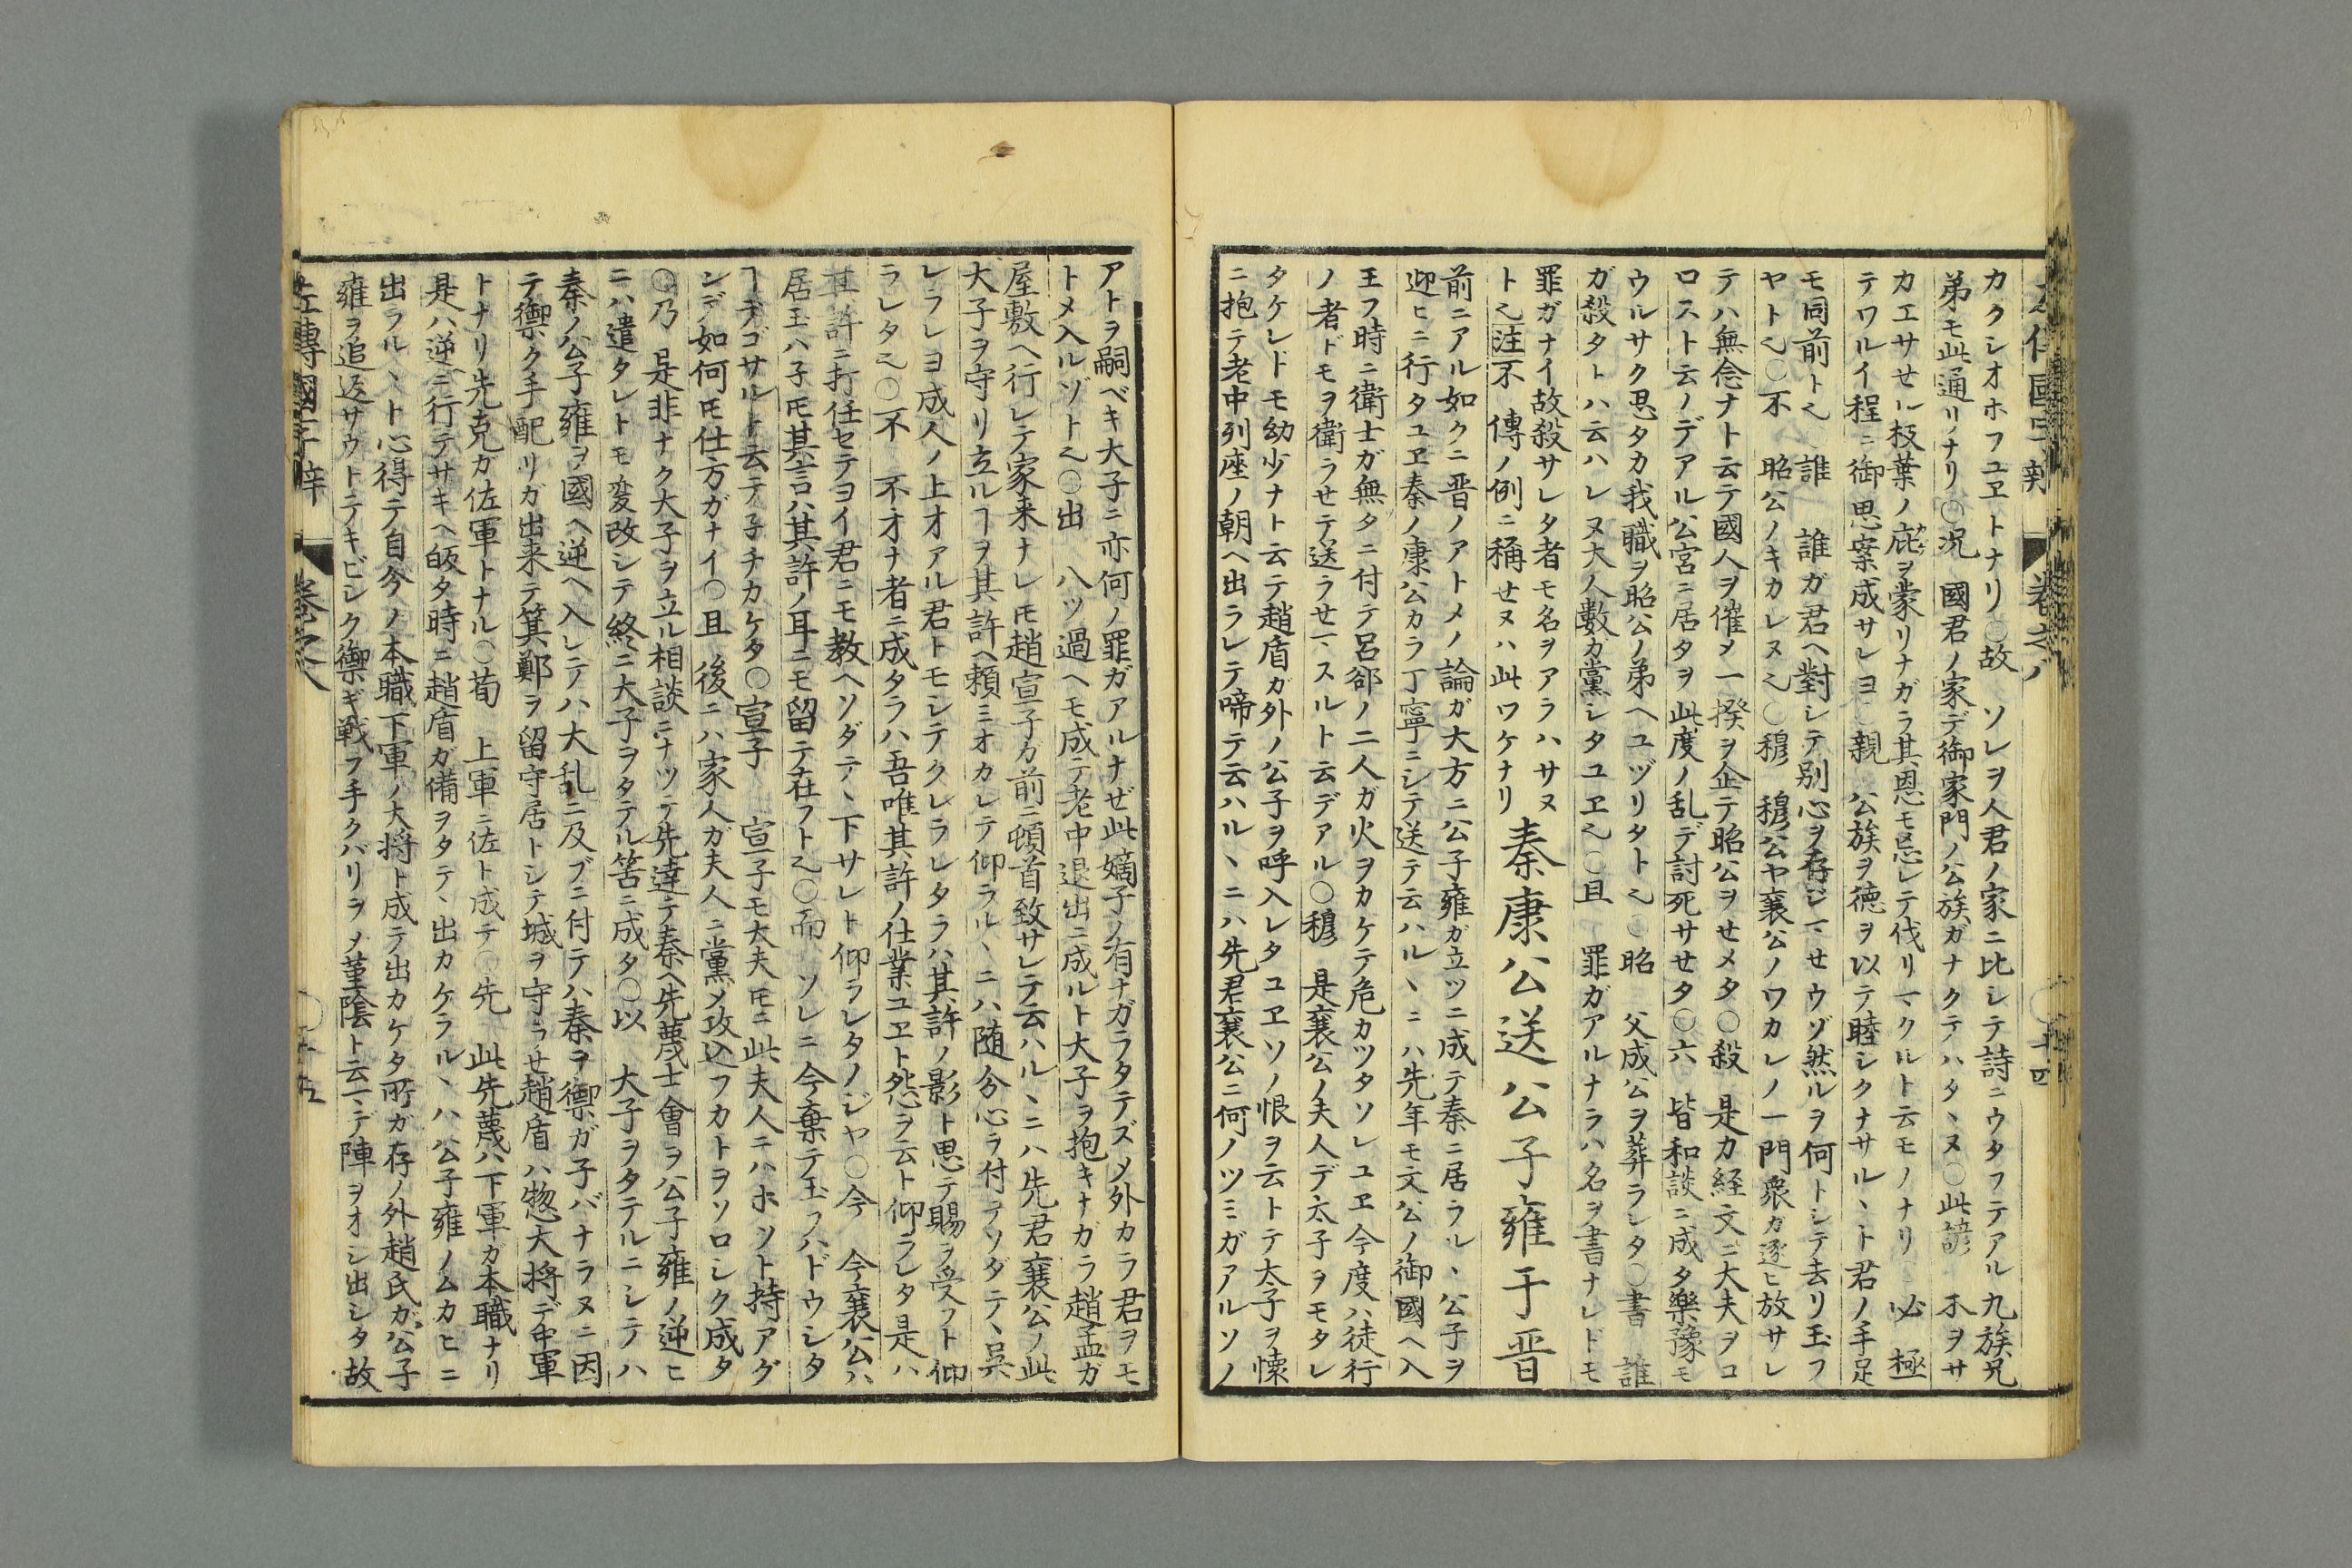 カクシオホフユヱトナリ○故 ソレヲ人君ノ家ニ比シテ詩ニウタフテアル九族兄
弟モ此通リナリ○況 國君ノ家デ御家門ノ公族ガナクテハタヽヌ○此諺 木ヲサ
カエサセル枝葉ノ庇ヲ蒙リナガラ其恩モ忘レテ伐リマクルト云モノナリ○必 極
テワルイ程ニ御思案成サレヨ○親 公族ヲ徳ヲ以テ睦シクナサルヽト君ノ手足
モ同前ト也 誰 誰ガ君ヘ對シテ別心ヲ存ジマセウゾ然ルヲ何トシテ去リ玉フ
ヤト也○不 昭公ノキカレヌ也○穆 穆公ヤ襄公ノワカレノ一門衆ガ逐ヒ放サレ
テハ無念ナト云テ國人ヲ催メ一揆ヲ企テ昭公ヲせメタ○殺 是カ経文ニ大夫ヲコ
ロスト云ノデアル公宮ニ居タヲ此度ノ乱デ討死サせタ○六 皆和談ニ成タ樂豫モ
ウルサク思タカ我職ヲ昭公ノ弟ヘユヅリタト也○昭 父成公ヲ葬ラレタ○書 誰
ガ殺タトハ云ハレヌ大人數カ黨シタユヱ也○且 罪ガアルナラハ名ヲ書ナレドモ
罪ガナイ故殺サレタ者モ名ヲアラハサヌ
ト也注不 傳ノ例ニ稱せヌハ此ワケナリ 秦康公送公子雍于晋
前ニアル如クニ晋ノアトメノ論ガ大方ニ公子雍ガ立ツニ成テ秦ニ居ラルヽ公子ヲ
迎ヒニ行タユヱ秦ノ康公カラ丁寧ニシテ送テ云ハルヽニハ先年モ文公ノ御國ヘ入
王フ時ニ衛士ガ無タニ付テ呂郤ノ二人ガ火ヲカケテ危カツタソレユヱ今度ハ徒行
ノ者ドモヲ衛ラせテ送ラせマスルト云デアル○穆 是襄公ノ夫人デ太子ヲモタレ
タケレドモ幼少ナト云テ趙盾ガ外ノ公子ヲ呼入レタユヱソノ恨ヲ云トテ太子ヲ懐
ニ抱テ老中列座ノ朝ヘ出ラレテ啼テ云ハルヽニハ先君襄公ニ何ノツミガアルソノ
アトヲ嗣ベキ大子ニ亦何ノ罪ガアルナぜ此嫡子ノ有ナガラタテズメ外カラ君ヲモ
トメ入ルゾト也○出 八ツ過ヘモ成テ老中退出ニ成ルト大子ヲ抱キナガラ趙孟ガ
屋敷ヘ行レテ家来ナレ𪜈趙宣子カ前ニ頓首致サレテ云ハルヽニハ先君襄公ノ此
大子ヲ守リ立ルヿヲ其許ヘ頼ミオカレテ仰ラルヽニハ随分心ラ付テソダテヽ呉
レラレヨ成人ノ上オアル君トモシテクレラレタラハ其許ノ影ト思テ賜ヲ受フト仰
ラレタ也○不 不才ナ者ニ成タラハ吾唯其許ノ仕業ユヱト怨ヲ云ト仰ラレタ是ハ
其許ニ打任セテヨイ君ニモ教ヘソダテヽ下サレト仰ラレタノジヤ○今 今襄公ハ
居玉ハ子𪜈其言ハ其許ノ耳ニモ留テ在フト也○而 ソレニ今棄テ玉フハドウシタ
ヿデゴサルト云テ子チカケタ○宣子 宣子モ大夫𪜈ニ此夫人ニハホツト持アグ
ンデ如何𪜈仕方ガナイ○且 後ニハ家人ガ夫人ニ黨メ攻込フカトヲソロシク成タ
○乃 是非ナク大子ヲ立ル相談ニナツテ先達テ秦ヘ先蔑士會ヲ公子雍ノ逆ヒ
ニハ遣タレトモ変改シテ終ニ大子ヲタテル筈ニ成タ○以 大子ヲタテルニシテハ
秦ノ公子雍ヲ國ヘ逆ヘ入レテハ大乱ニ及ブニ付テハ秦ヲ禦ガ子バナラヌニ因
テ禦ク手配リガ出来テ箕鄭ヲ留守居トシテ城ヲ守ラせ趙盾ハ惣大将デ中軍
トナリ先克カ佐軍トナル○荀 上軍ニ佐ト成テ○先 此先蔑ハ下軍カ本職ナリ
是ハ逆ニ行テサキヘ皈タ時ニ趙盾ガ備ヲタテヽ出カケラルヽハ公子雍ノムカヒニ
出ラルヽト心得テ自分ノ本職下軍ノ大将ト成テ出カケタ所ガ存ノ外趙氏ガ公子
雍ヲ追返サウトテキビシク禦ギ戦フ手クバリヲメ菫陰ト云マデ陣ヲオシ出シタ故
左傳國字辨 巻之八